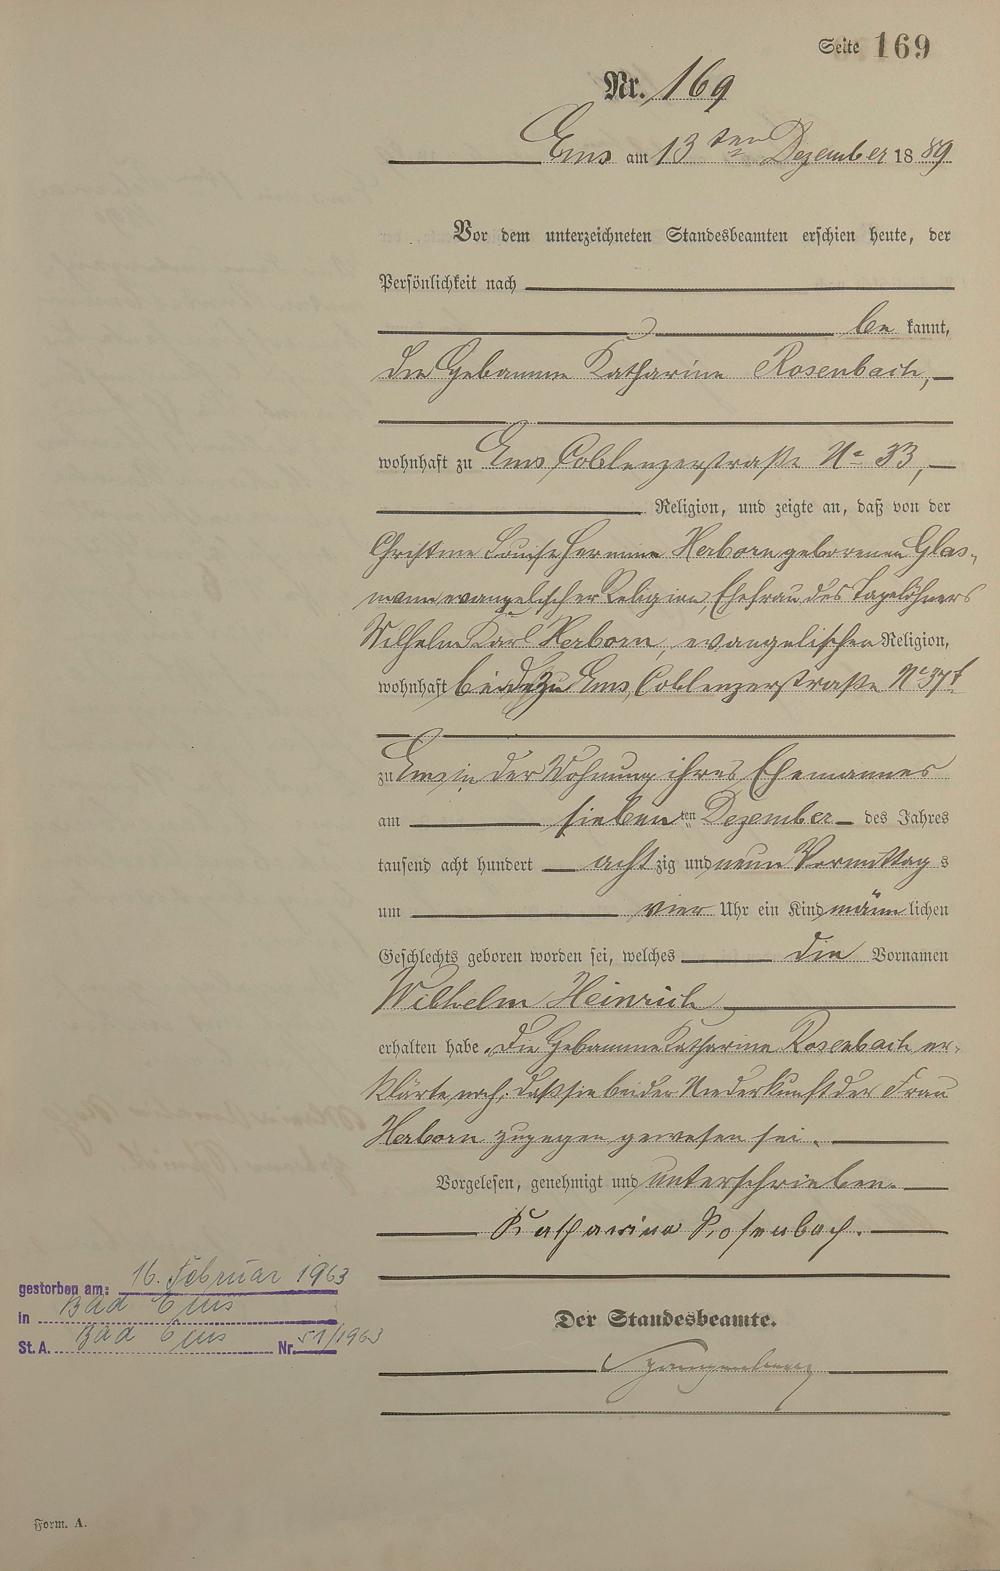 Seite 169
Nr. 169
Ems am 13ten Dezember 1889
Vor dem unterzeichneten Standesbeamten erschien heute, der
Persönlichkeit nach
be kannt,
die Hebamme Katharine Rosenbach,
wohnhaft zu Ems Coblenzerstraße No 33,
Religion, und zeigte an, daß von der
Christine Louise Hermine Herborn geborenen Glas-
mann evangelischer Religion, Ehefrau des Tagelöhners
Wilhelm Karl Herborn, evangelischer Religion,
wohnhaft beide zu Ems, Coblenzerstraße No 37
zu Ems in der Wohnung ihres Ehemannes
am sieben ten Dezember des Jahres
tausend acht hundert achtzig und neun Vormittags
um vier Uhr ein Kind männlichen
Geschlechts geboren worden sei, welches die Vornamen
Wilhelm Heinrich
erhalten habe. Die Hebamme Katharine Rosenbach er-
klärte noch, daß sie bei der Niederkunft der Frau
Herborn zugegen gewesen sei.
Vorgelesen, genehmigt und unterschrieben.
Katharina Rosenbach.
Der Standesbeamte.
gestorben am: 16. Februar 1963
in Bad Ems
St. A. Bad Ems Nr. 51/1963
Form. A.